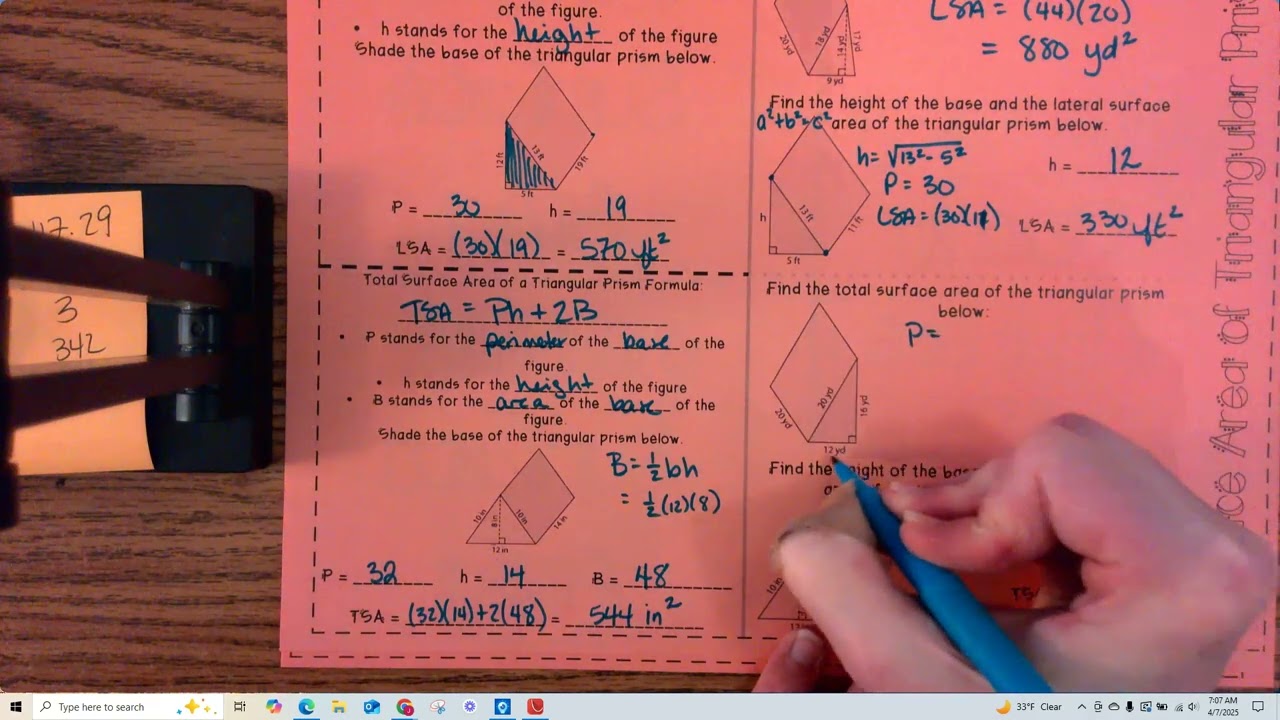 of the figure.
• h stands for the height of the figure
Shade the base of the triangular prism below.
12 ft
13 ft
19 ft
5 ft
P = 30 h = 19
LSA = (30)(19) = 570 ft²
Total Surface Area of a Triangular Prism Formula:
TSA = Ph + 2B
• P stands for the perimeter of the base of the
figure.
• h stands for the height of the figure
• B stands for the area of the base of the
figure.
Shade the base of the triangular prism below.
B = ½bh
= ½(12)(8)
10 in
8 in
10 in
14 in
12 in
P = 32 h = 14 B = 48
TSA = (32)(14)+2(48) = 544 in²
LSA = (44)(20)
= 880 yd²
20 yd
18 yd
14 yd
17 yd
9 yd
Find the height of the base and the lateral surface
a²+b²=c² area of the triangular prism below.
h = √13² - 5²
h = 12
P = 30
LSA = (30)(11) LSA = 330 ft²
h
13 ft
11 ft
5 ft
Find the total surface area of the triangular prism
below:
P =
20 yd
20 yd
16 yd
12 yd
Find the height of the
10 in
ce Area of Triangular Pris
47.29
3
342
Type here to search
33°F Clear
7:07 AM
4/7/2025